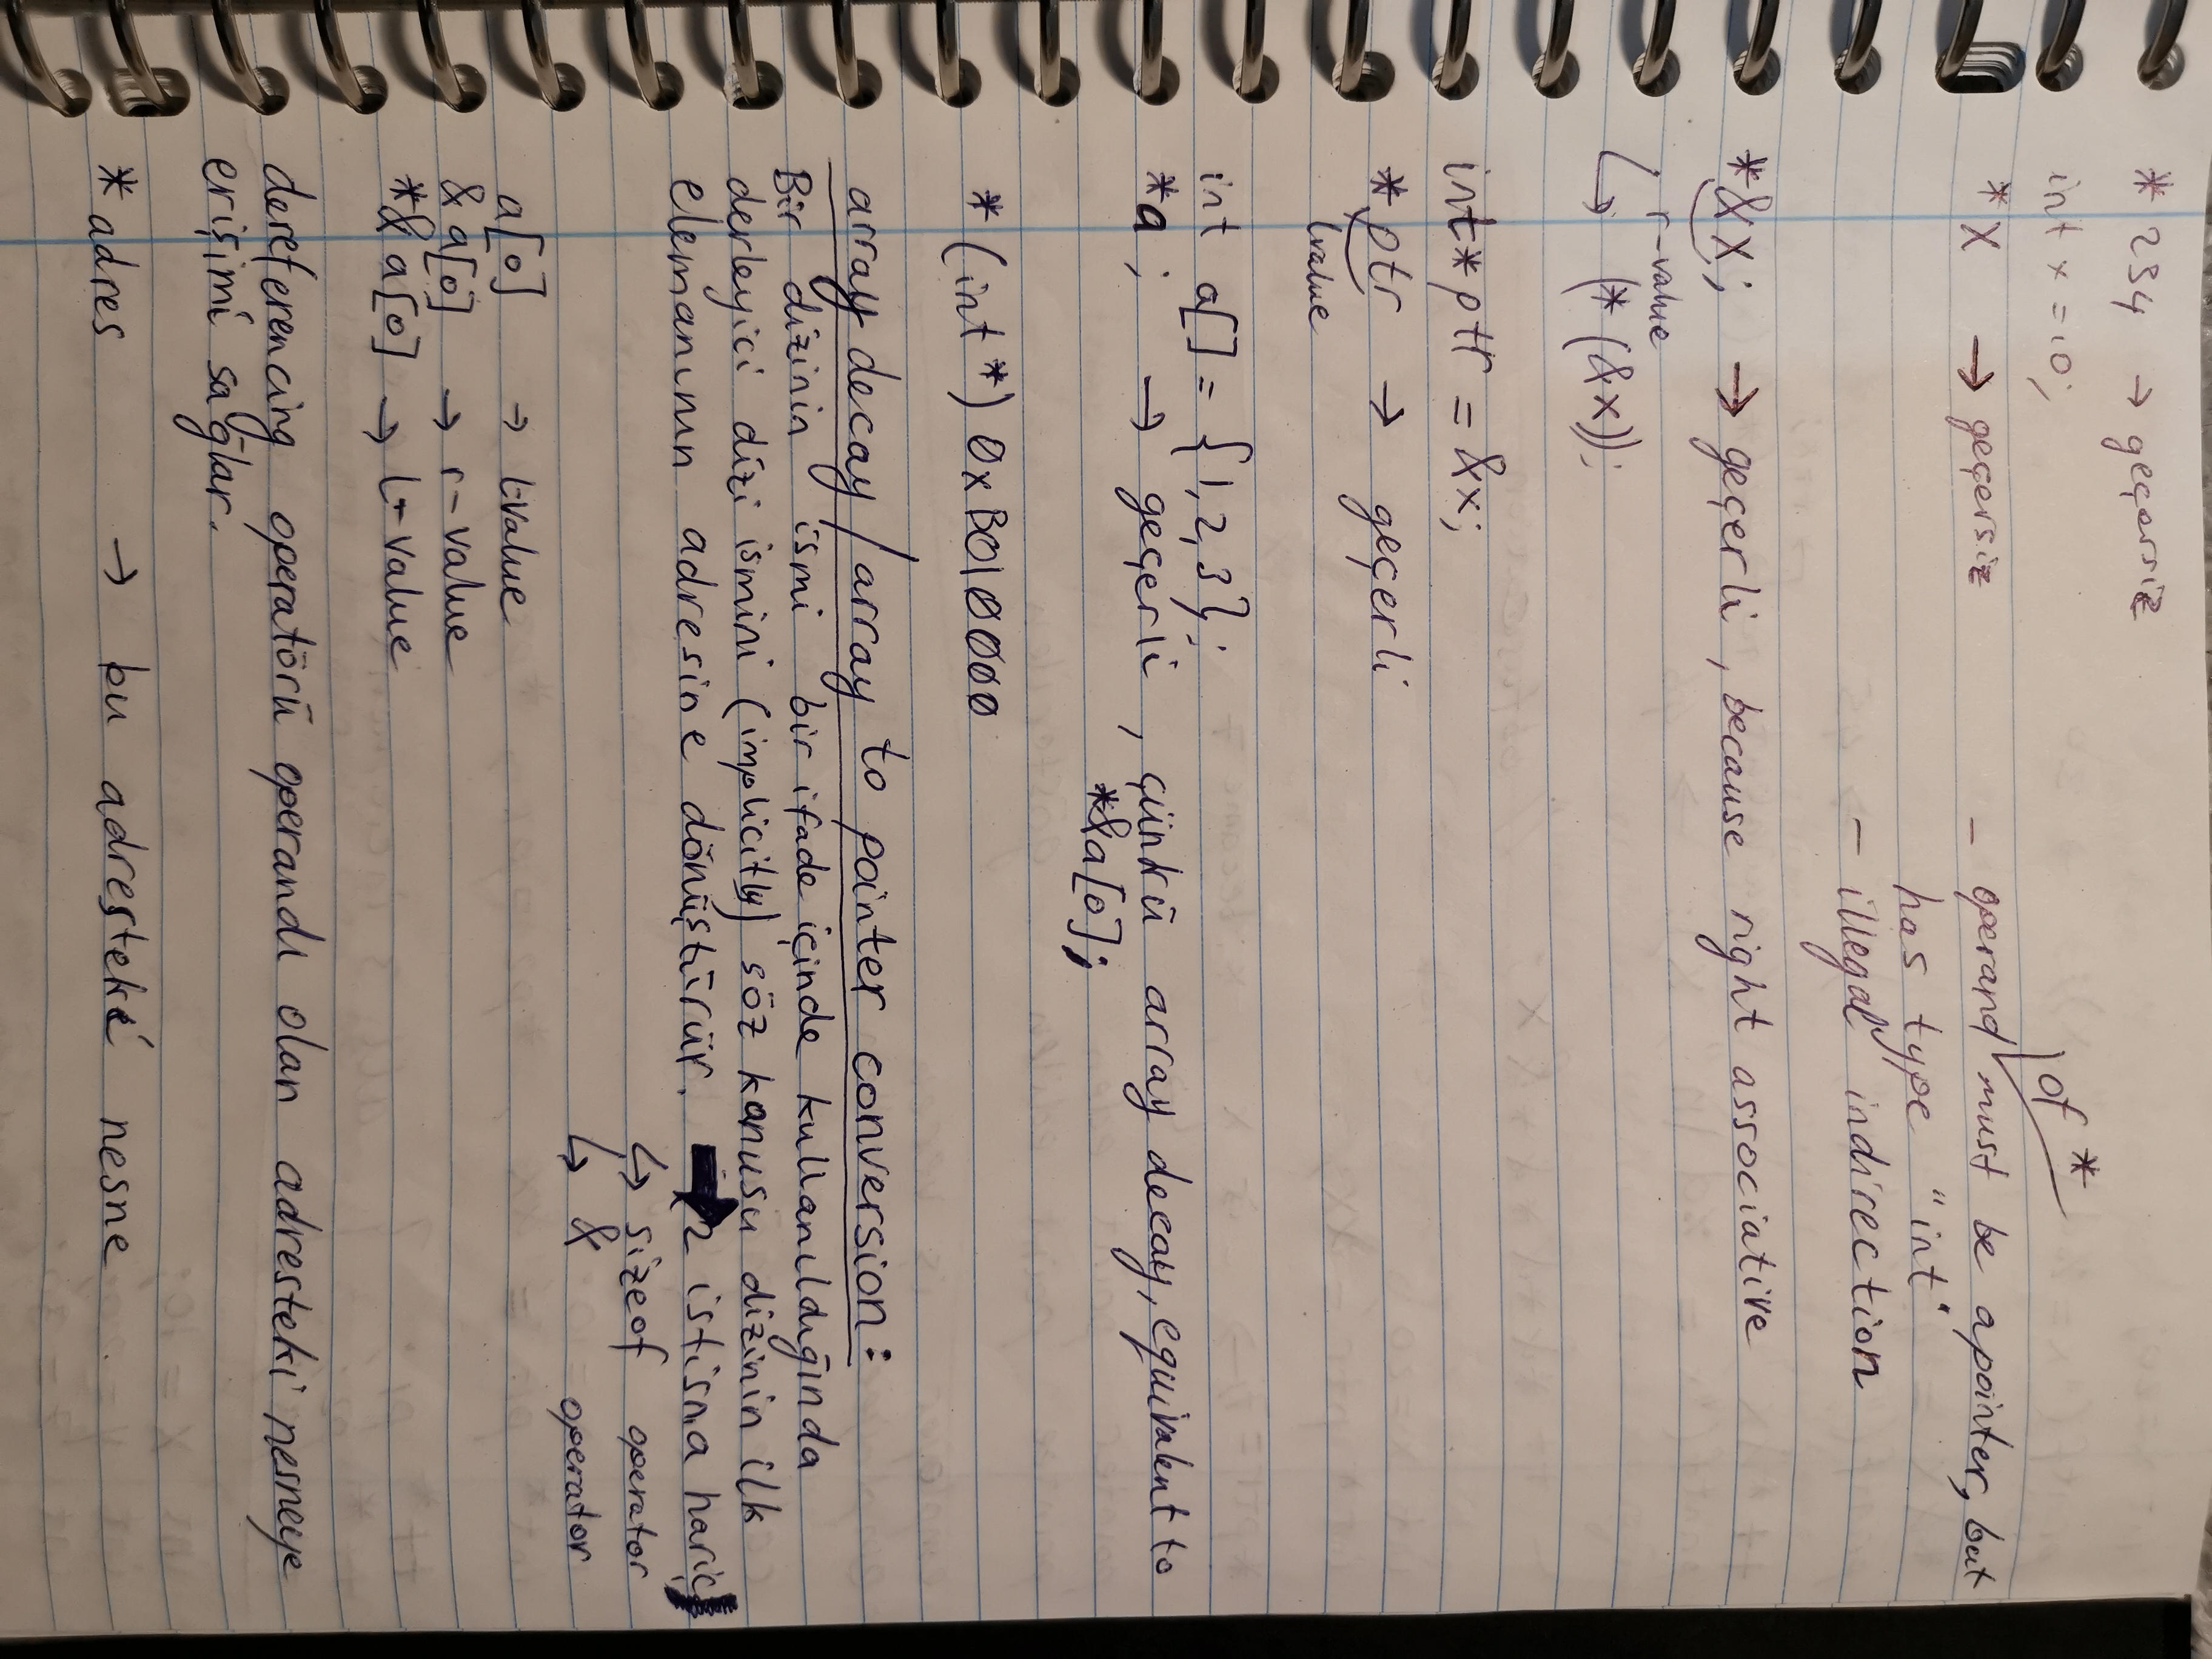 * 234 → geçersiz
int x = 10;
of *
* x → geçersiz - operand must be a pointer, but
has type "int"
- illegal indirection
*&x; → geçerli, because right associative
r-value
↳ (*(&x));
int* ptr = &x;
* ptr → geçerli
lvalue
int a[] = {1,2,3};
*a; → geçerli, çünkü array decay, equivalent to
*&a[0];
*(int*) 0xB010000
array decay / array to pointer conversion:
Bir dizinin ismi bir ifade içinde kullanıldığında
derleyici dizi ismini (implicitly) söz konusu dizinin ilk
elemanının adresine dönüştürür. → 2 istisna hariç
↳ sizeof operator
↳ & operator
a[0] → L-value
&a[0] → r-value
*&a[0] → L-value
dereferencing operatörü operandı olan adresteki nesneye
erişimi sağlar.
* adres → bu adresteki nesne